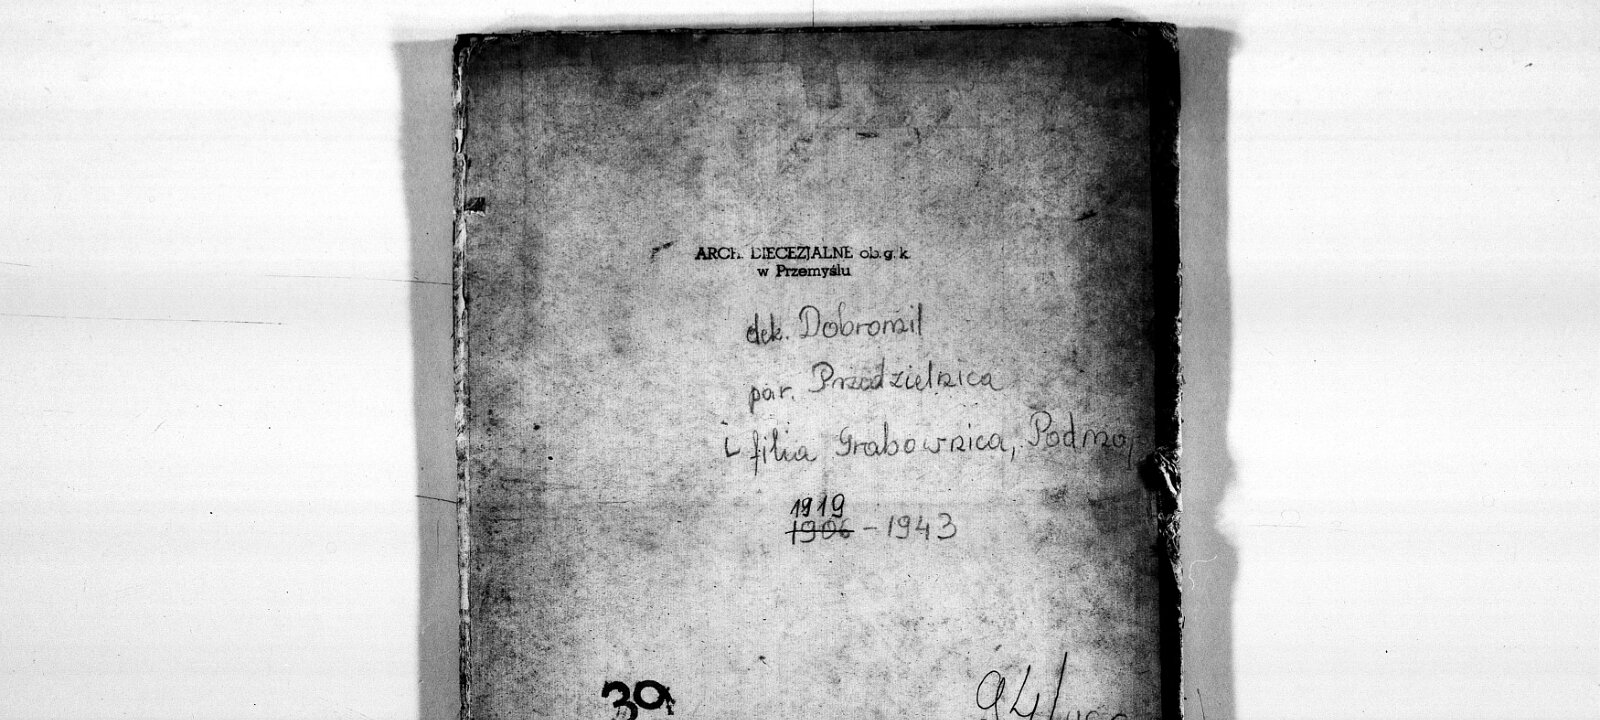 ARCH. DIECEZJALNE ob. g. k.
w Przemyślu
dek. Dobromil
par. Przedzielnica
i filia Grabownica,
1919
1906 - 1943
39
94/